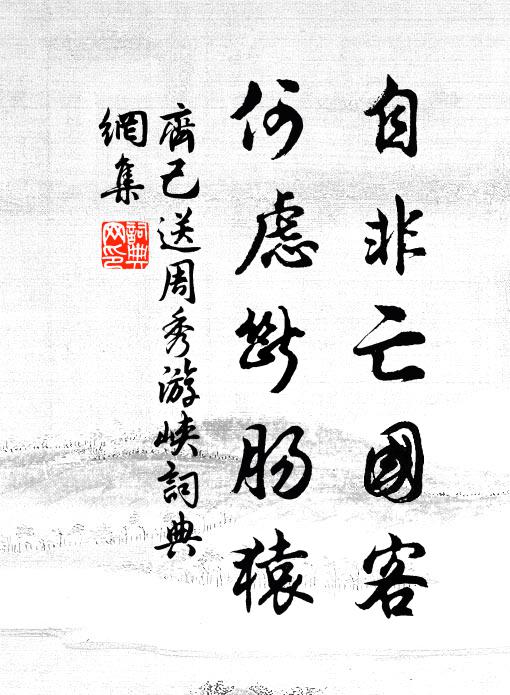 自非亡國客
何慮斷肠猿
齊己送周秀游峡詞典
網集
詞典
网印